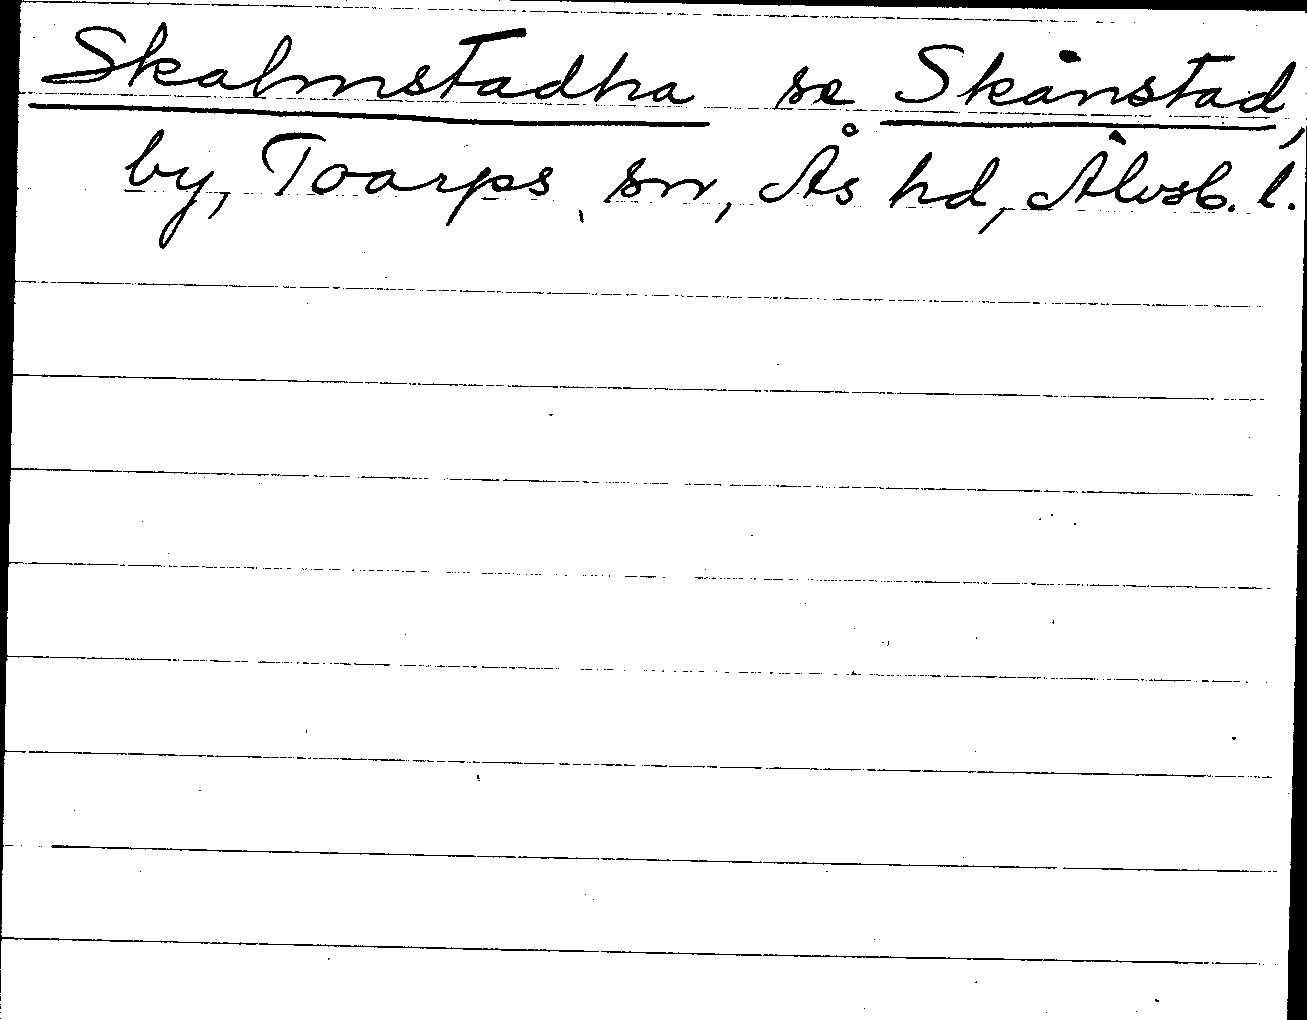 Skalmstadha se Skånstad,
by, Toarps sn, Ås hd, Älvsb. l.